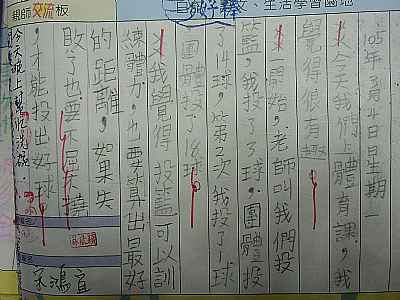 親師交流板
、生活學習園地
105年3月4日星期一
今天我們上體育課,我
覺得很有趣。
一開始,老師叫我們投
籃,我投了3球,團體投
了14球,第2次我投了1球
,團體投了18球。
我覺得投籃可以訓
練體力,也要算出最好
的距離,如果失
敗了也要不屈不撓
,才能投出好球。
今天晚上幫忙洗碗